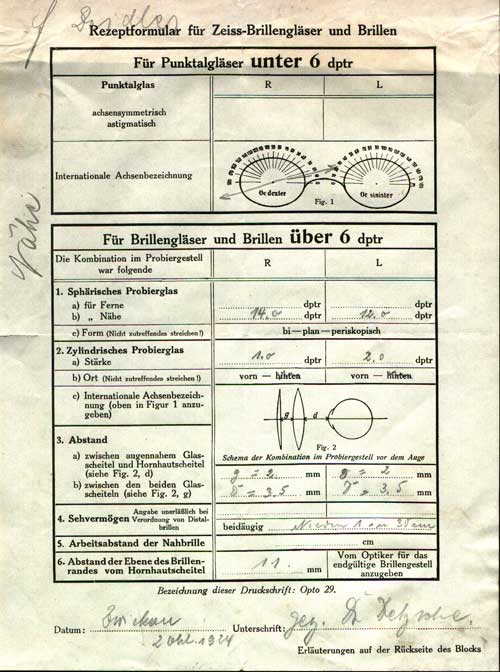 Rezeptformular für Zeiss-Brillengläser und Brillen
Für Punktalgläser unter 6 dptr
Punktalglas R L
achsensymmetrisch
astigmatisch
Internationale Achsenbezeichnung
Oc dexter Oc sinister
Fig. 1
Nähe
Für Brillengläser und Brillen über 6 dptr
Die Kombination im Probiergestell
war folgende
R L
1. Sphärisches Probierglas
a) für Ferne dptr dptr
b) „ Nähe 14.0 dptr 12.0 dptr
c) Form (Nicht zutreffendes streichen!) bi—plan—periskopisch
2. Zylindrisches Probierglas
a) Stärke 1.0 dptr 2.0 dptr
b) Ort (Nicht zutreffendes streichen!) vorn — hinten vorn — hinten
c) Internationale Achsenbezeich-
nung (oben in Figur 1 anzu-
geben)
g d
Fig. 2
Schema der Kombination im Probiergestell vor dem Auge
3. Abstand
a) zwischen augennahem Glas-
scheitel und Hornhautscheitel
(siehe Fig. 2, d)
g = 2 mm g = 2 mm
b) zwischen den beiden Glas-
scheiteln (siehe Fig. 2, g)
= 3.5 mm = 3.5 mm
4. Sehvermögen Angabe unerläßlich bei
Verordnung von Distal-
brillen
beidäugig
5. Arbeitsabstand der Nahbrille cm
6. Abstand der Ebene des Brillen-
randes vom Hornhautscheitel
11. mm
Vom Optiker für das
endgültige Brillengestell
anzugeben
Bezeichnung dieser Druckschrift: Opto 29.
Datum: Zwickau Unterschrift: gez. Dr
1924
Erläuterungen auf der Rückseite des Blocks